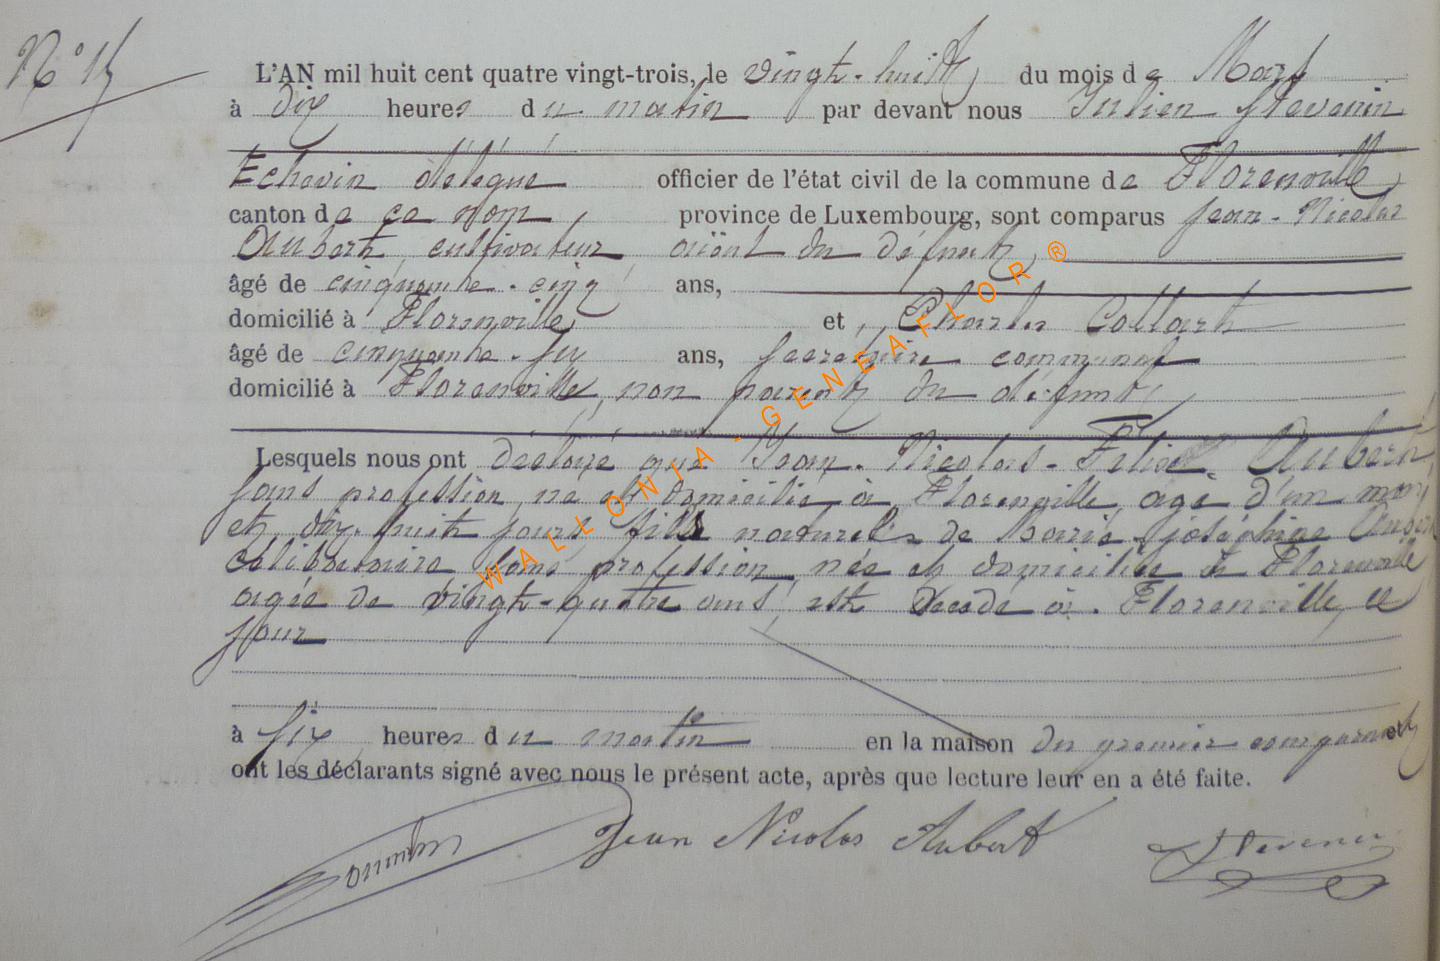 N° 15
L'AN mil huit cent quatre vingt-trois, le vingt-huit du mois de Mars
à dix heures du matin par devant nous Julien Stevenin
Echevin délégué officier de l'état civil de la commune de Florenville
canton de ce nom, province de Luxembourg, sont comparus Jean-Nicolas
Aubert, cultivateur aïeul du défunt,
âgé de cinquante-cinq ans,
domicilié à Florenville et Charles Collart
âgé de cinquante-six ans, secrétaire communal
domicilié à Florenville, non parent du défunt,
Lesquels nous ont déclaré que Jean-Nicolas-Felix Aubert,
sans profession, né et domicilié à Florenville, agé d'un mois
et dix-huit jours fils naturel de Marie-joséphine Aubert
célibataire sans profession, née et domiciliée à Florenville
agée de vingt-quatre ans, est decedé à Florenville, ce
jour
à six heures du matin en la maison du premier comparant et
ont les déclarants signé avec nous le présent acte, après que lecture leur en a été faite.
Jean Nicolas Aubert Stevenin
WALLONIA-GENEAFLOR®